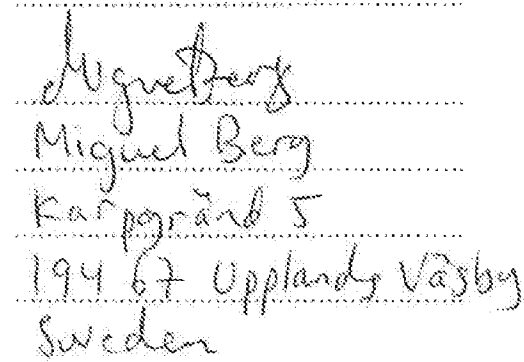 Miguel Berg
Miguel Berg
Karpgränd 5
194 67 Upplands Väsby
Sweden